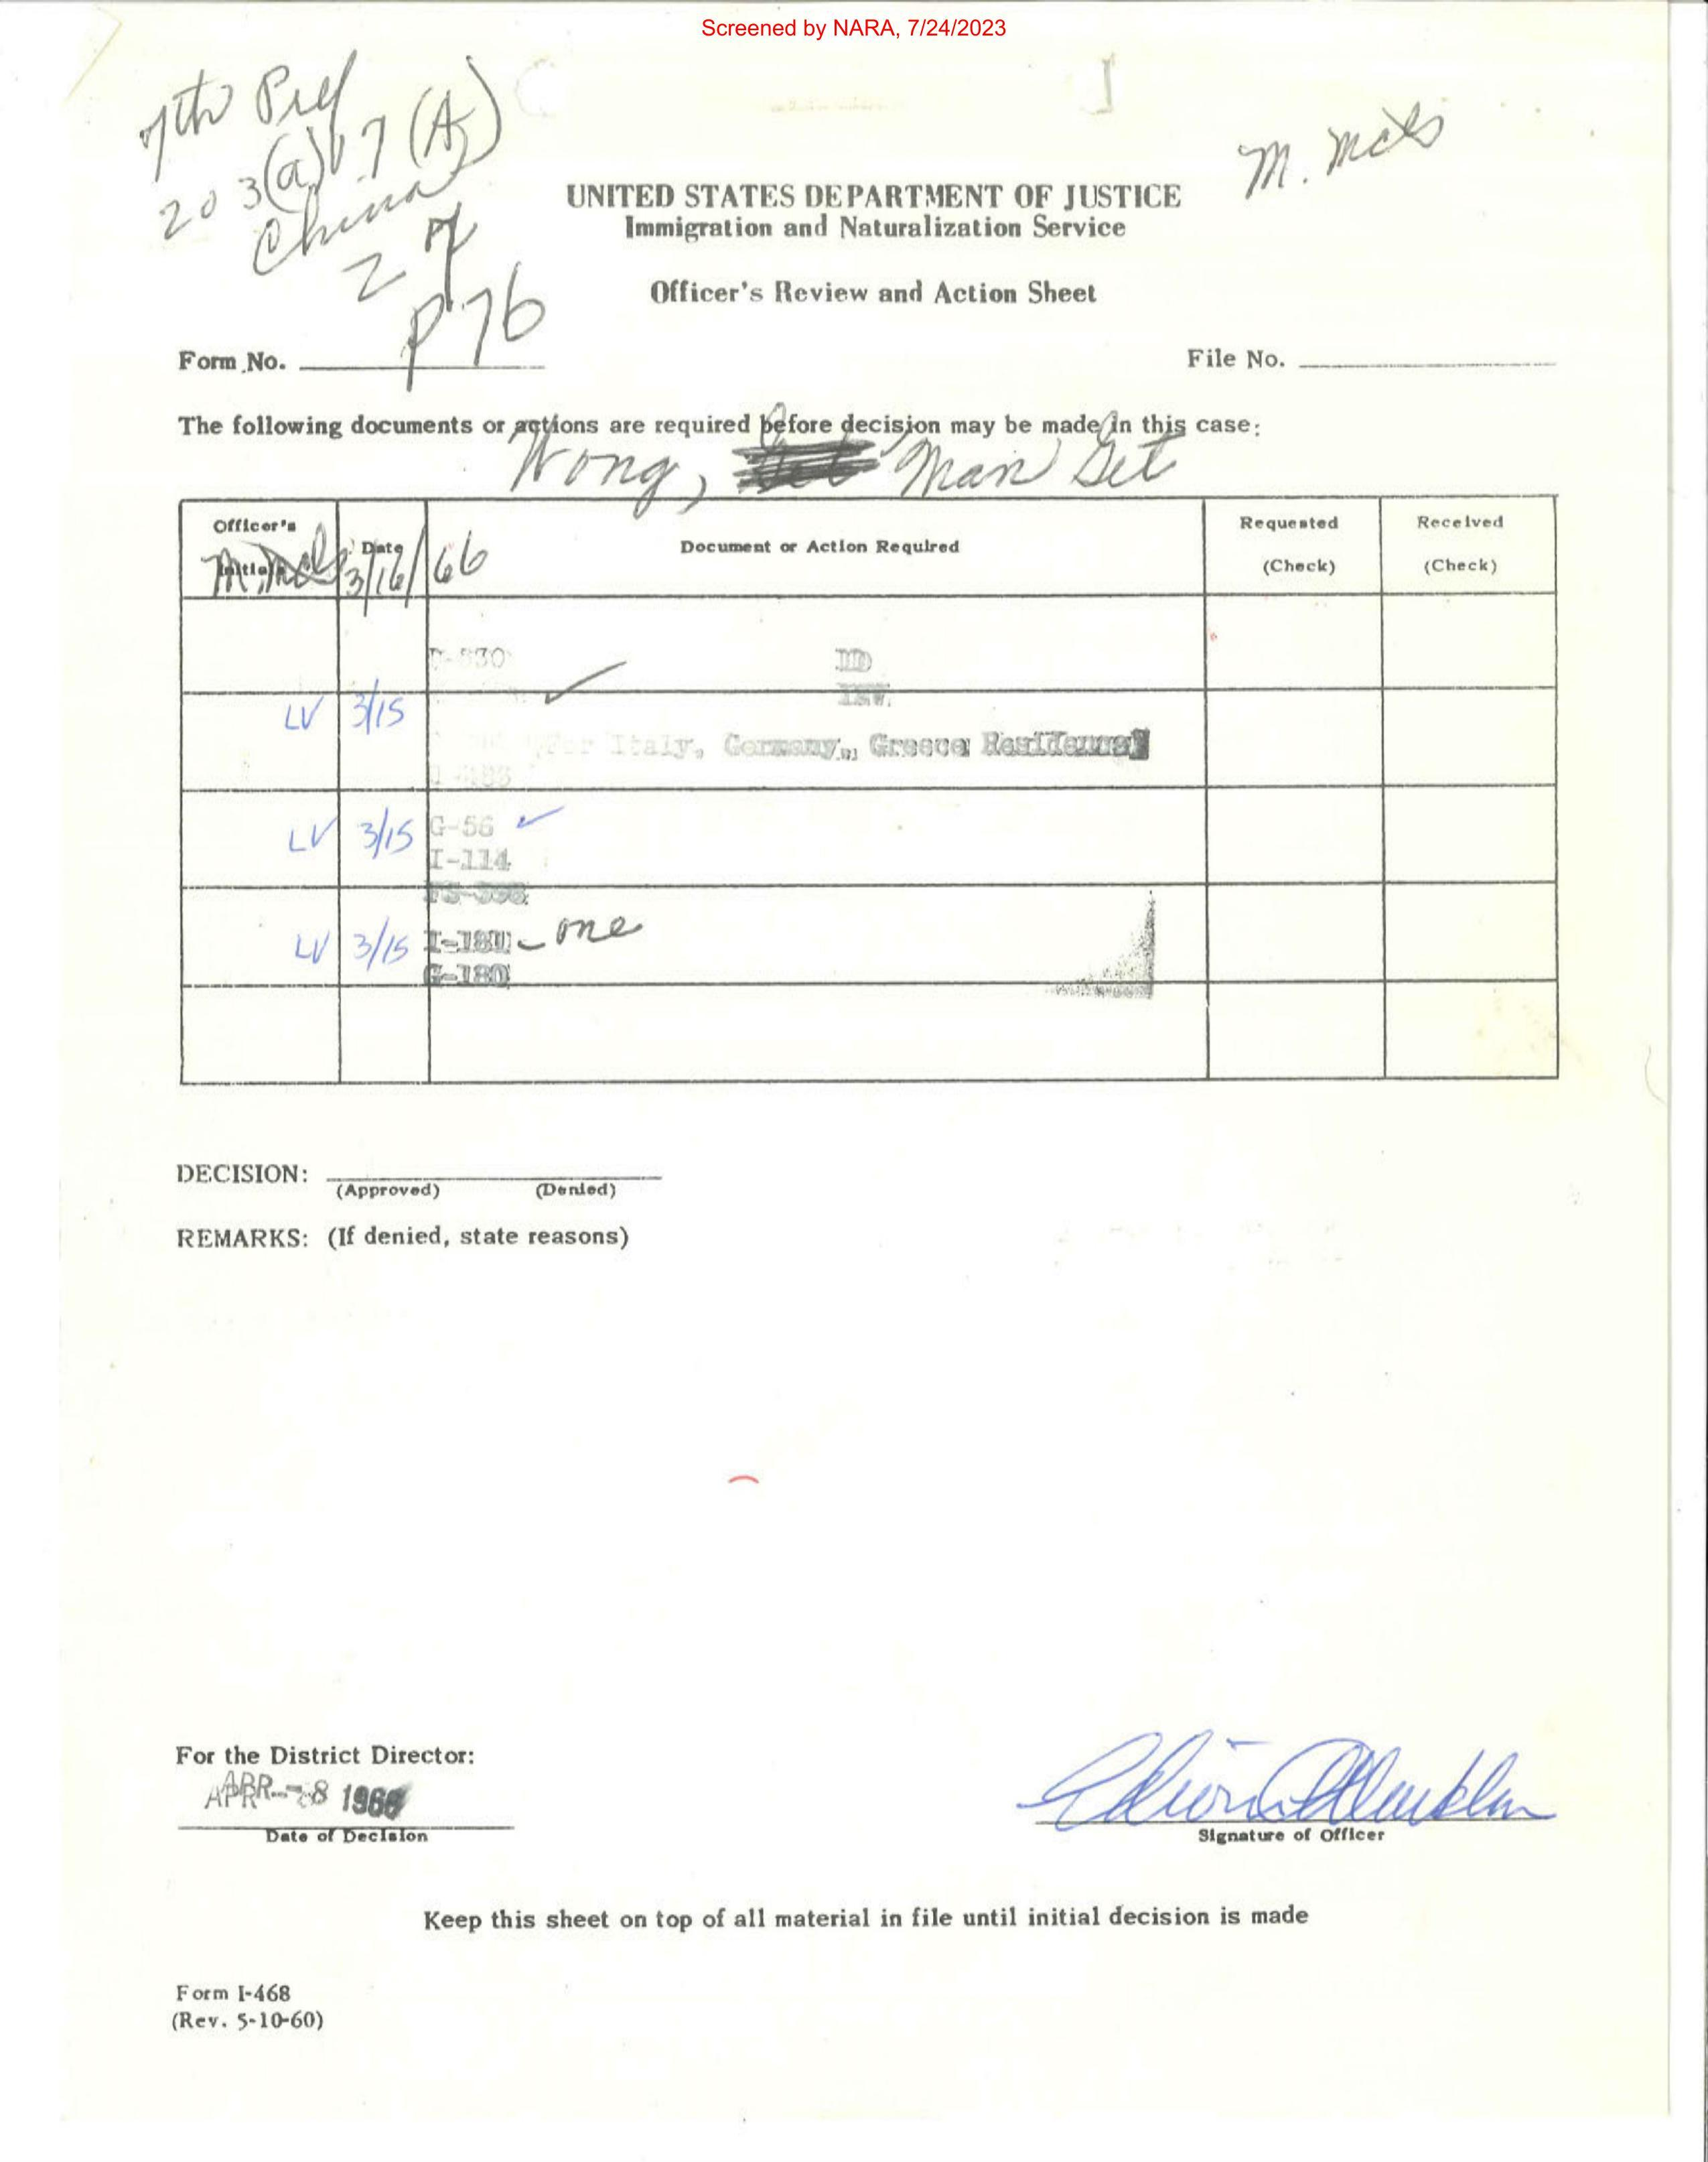 Screened by NARA, 7/24/2023
7th Pref
203(a)(7(A)
China
Z
P76
M.
UNITED STATES DEPARTMENT OF JUSTICE
Immigration and Naturalization Service
Officer's Review and Action Sheet
Form No.
File No.
The following documents or actions are required before decision may be made in this case:
Wong, Man Get
Officer's Initials
Date
Document or Action Required
Requested (Check)
Received (Check)
3/16/66
ID
LV 3/15
For Italy, Germany, Greece Residence
LV 3/15 G-56 ✓
I-114
LV 3/15 I-181 - one
G-180
DECISION:
(Approved) (Denied)
REMARKS: (If denied, state reasons)
For the District Director:
APR -8 1966
Date of Decision
Signature of Officer
Keep this sheet on top of all material in file until initial decision is made
Form I-468
(Rev. 5-10-60)